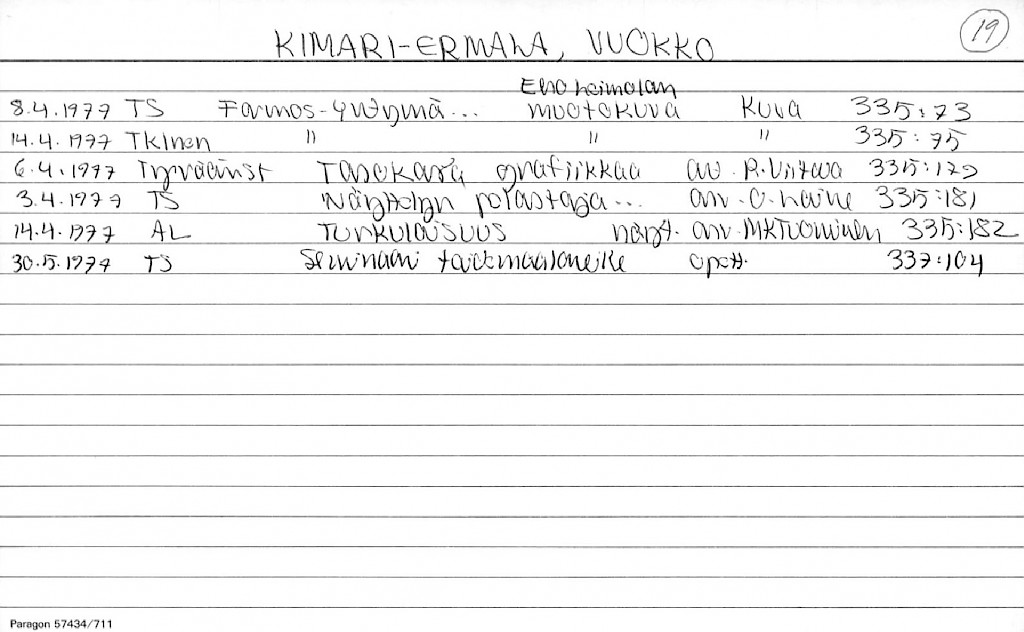 19
KIMARI-ERMALA, VUOKKO
Eino heimolan
8.4.1977 TS Farmos-yhtymä... muotokuva kuva 335:73
14.4.1977 Tkinen " " " 335:75
6.4.1977 Tyrväänst Tasokasta grafiikkaa arv. R. Viitala 335:179
3.4.1977 TS Näyttelyn pelastaja... arv. O. Laine 335:181
14.4.1977 AL TURKULAISUUS näyt. arv. MKTuominen 335:182
30.5.1977 TS Seminaari taidemaalareille opett. 337:104
Paragon 57434/711